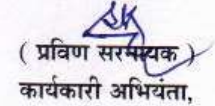 ( प्रविण सरनायक )
कार्यकारी अभियंता,